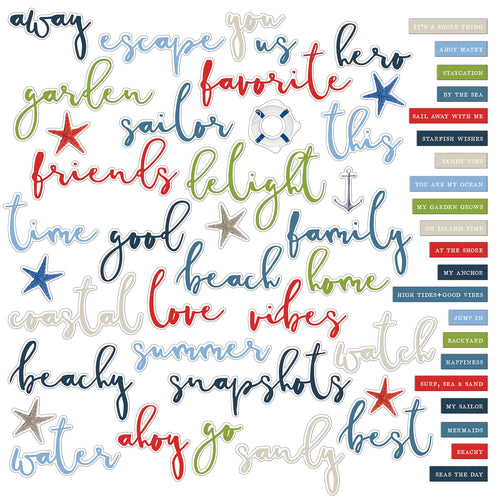 away
escape
you
us
hero
garden
favorite
sailor
this
friends
delight
time
good
family
beach
home
coastal
love
vibes
summer
watch
beachy
snapshots
water
ahoy
go
sandy
best
IT'S A SHORE THING
AHOY MATEY
STAYCATION
BY THE SEA
SAIL AWAY WITH ME
STARFISH WISHES
SANDY TOES
YOU ARE MY OCEAN
MY GARDEN GROWS
ON ISLAND TIME
AT THE SHORE
MY ANCHOR
HIGH TIDES+GOOD VIBES
JUMP IN
BACKYARD
HAPPINESS
SURF, SEA & SAND
MY SAILOR
MERMAIDS
BEACHY
SEAS THE DAY